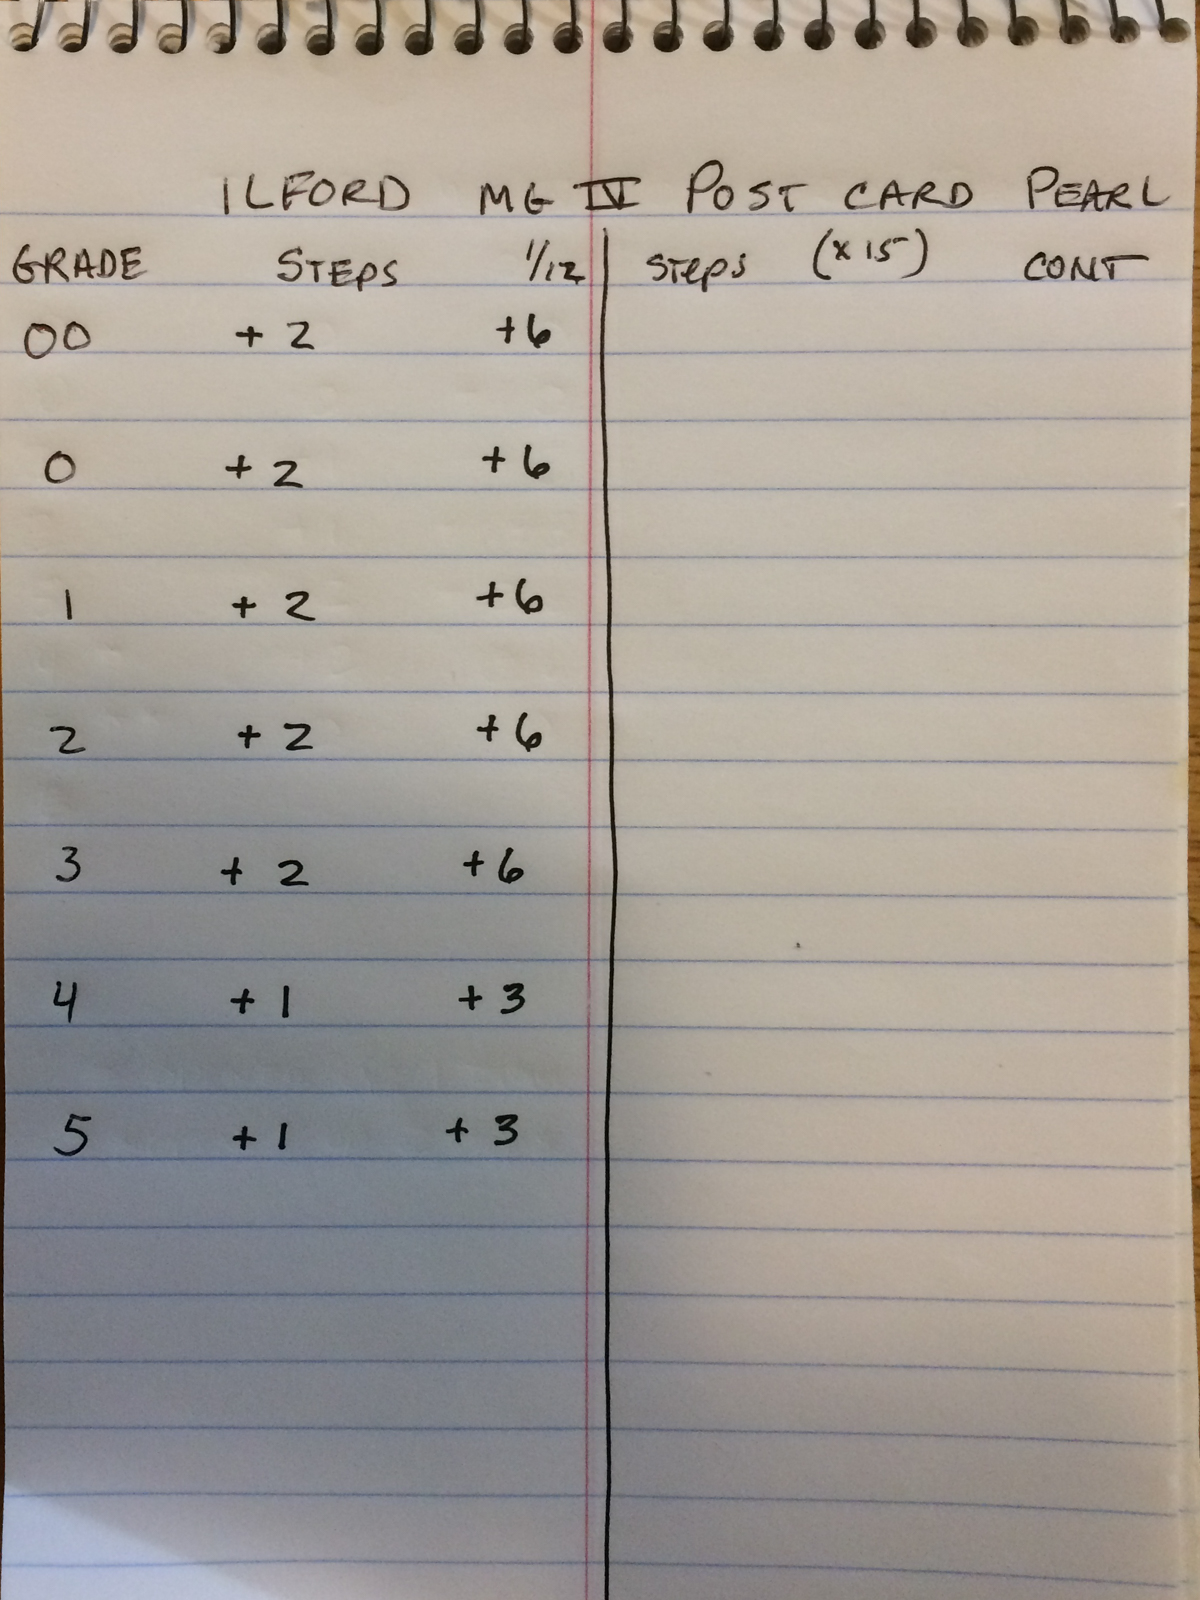 ILFORD MG IV POST CARD PEARL
GRADE STEPS 1/12 STEPS (x 15) CONT
00 + 2 +6
0 + 2 + 6
1 + 2 +6
2 + 2 +6
3 + 2 +6
4 + 1 + 3
5 + 1 + 3